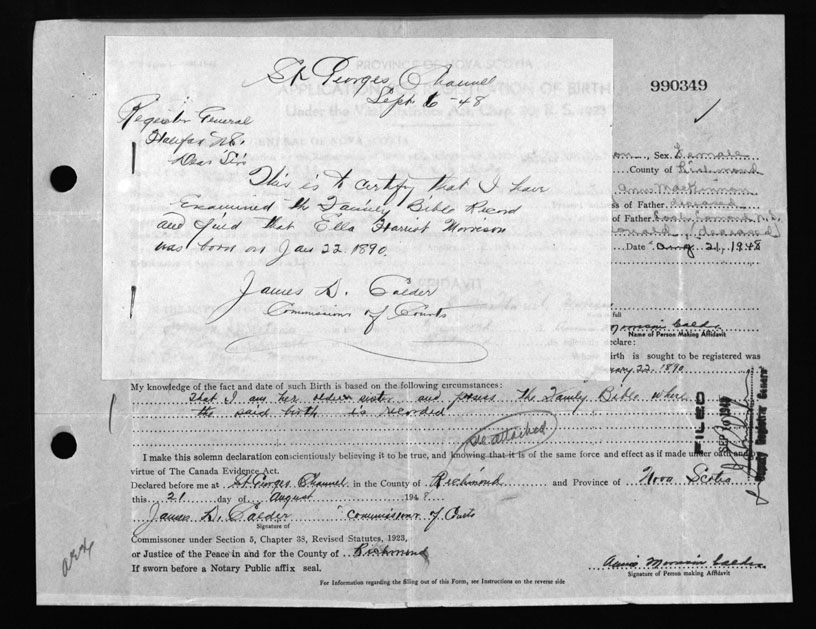 St. Georges Channel
Sept 6-48
Register General
Halifax N.S.
Dear Sir
This is to certify that I have
Examined the Family Bible Record
and find that Ella Harriet Morrison
was born on Jan 22 1890.
James D. Calder
Commissioner of Courts
PROVINCE OF NOVA SCOTIA
990349
Sex Female
County of Richmond
of Father deceased
of Father
(deceased)
Date Aug 21, 1948
full
Morrison Calder
Name of Person Making Affidavit
declare:
Birth is sought to be registered was
22, 1890
My knowledge of the fact and date of such Birth is based on the following circumstances:
That I am her older sister and possess the Family Bible where
the said birth is recorded
See attached
FILED
SEP 10 1948
Deputy Registrar General
I make this solemn declaration conscientiously believing it to be true, and knowing that it is of the same force and effect as if made under oath and
virtue of The Canada Evidence Act.
Declared before me at St. Georges Channel in the County of Richmond and Province of Nova Scotia
this 21 day of August 1948.
James D. Calder Commissioner of Courts
Signature of
Commissioner under Section 5, Chapter 38, Revised Statutes, 1923,
or Justice of the Peace in and for the County of Richmond
If sworn before a Notary Public affix seal.
Annie Morrison Calder
Signature of Person making Affidavit
For Information regarding the filling out of this Form, see Instructions on the reverse side